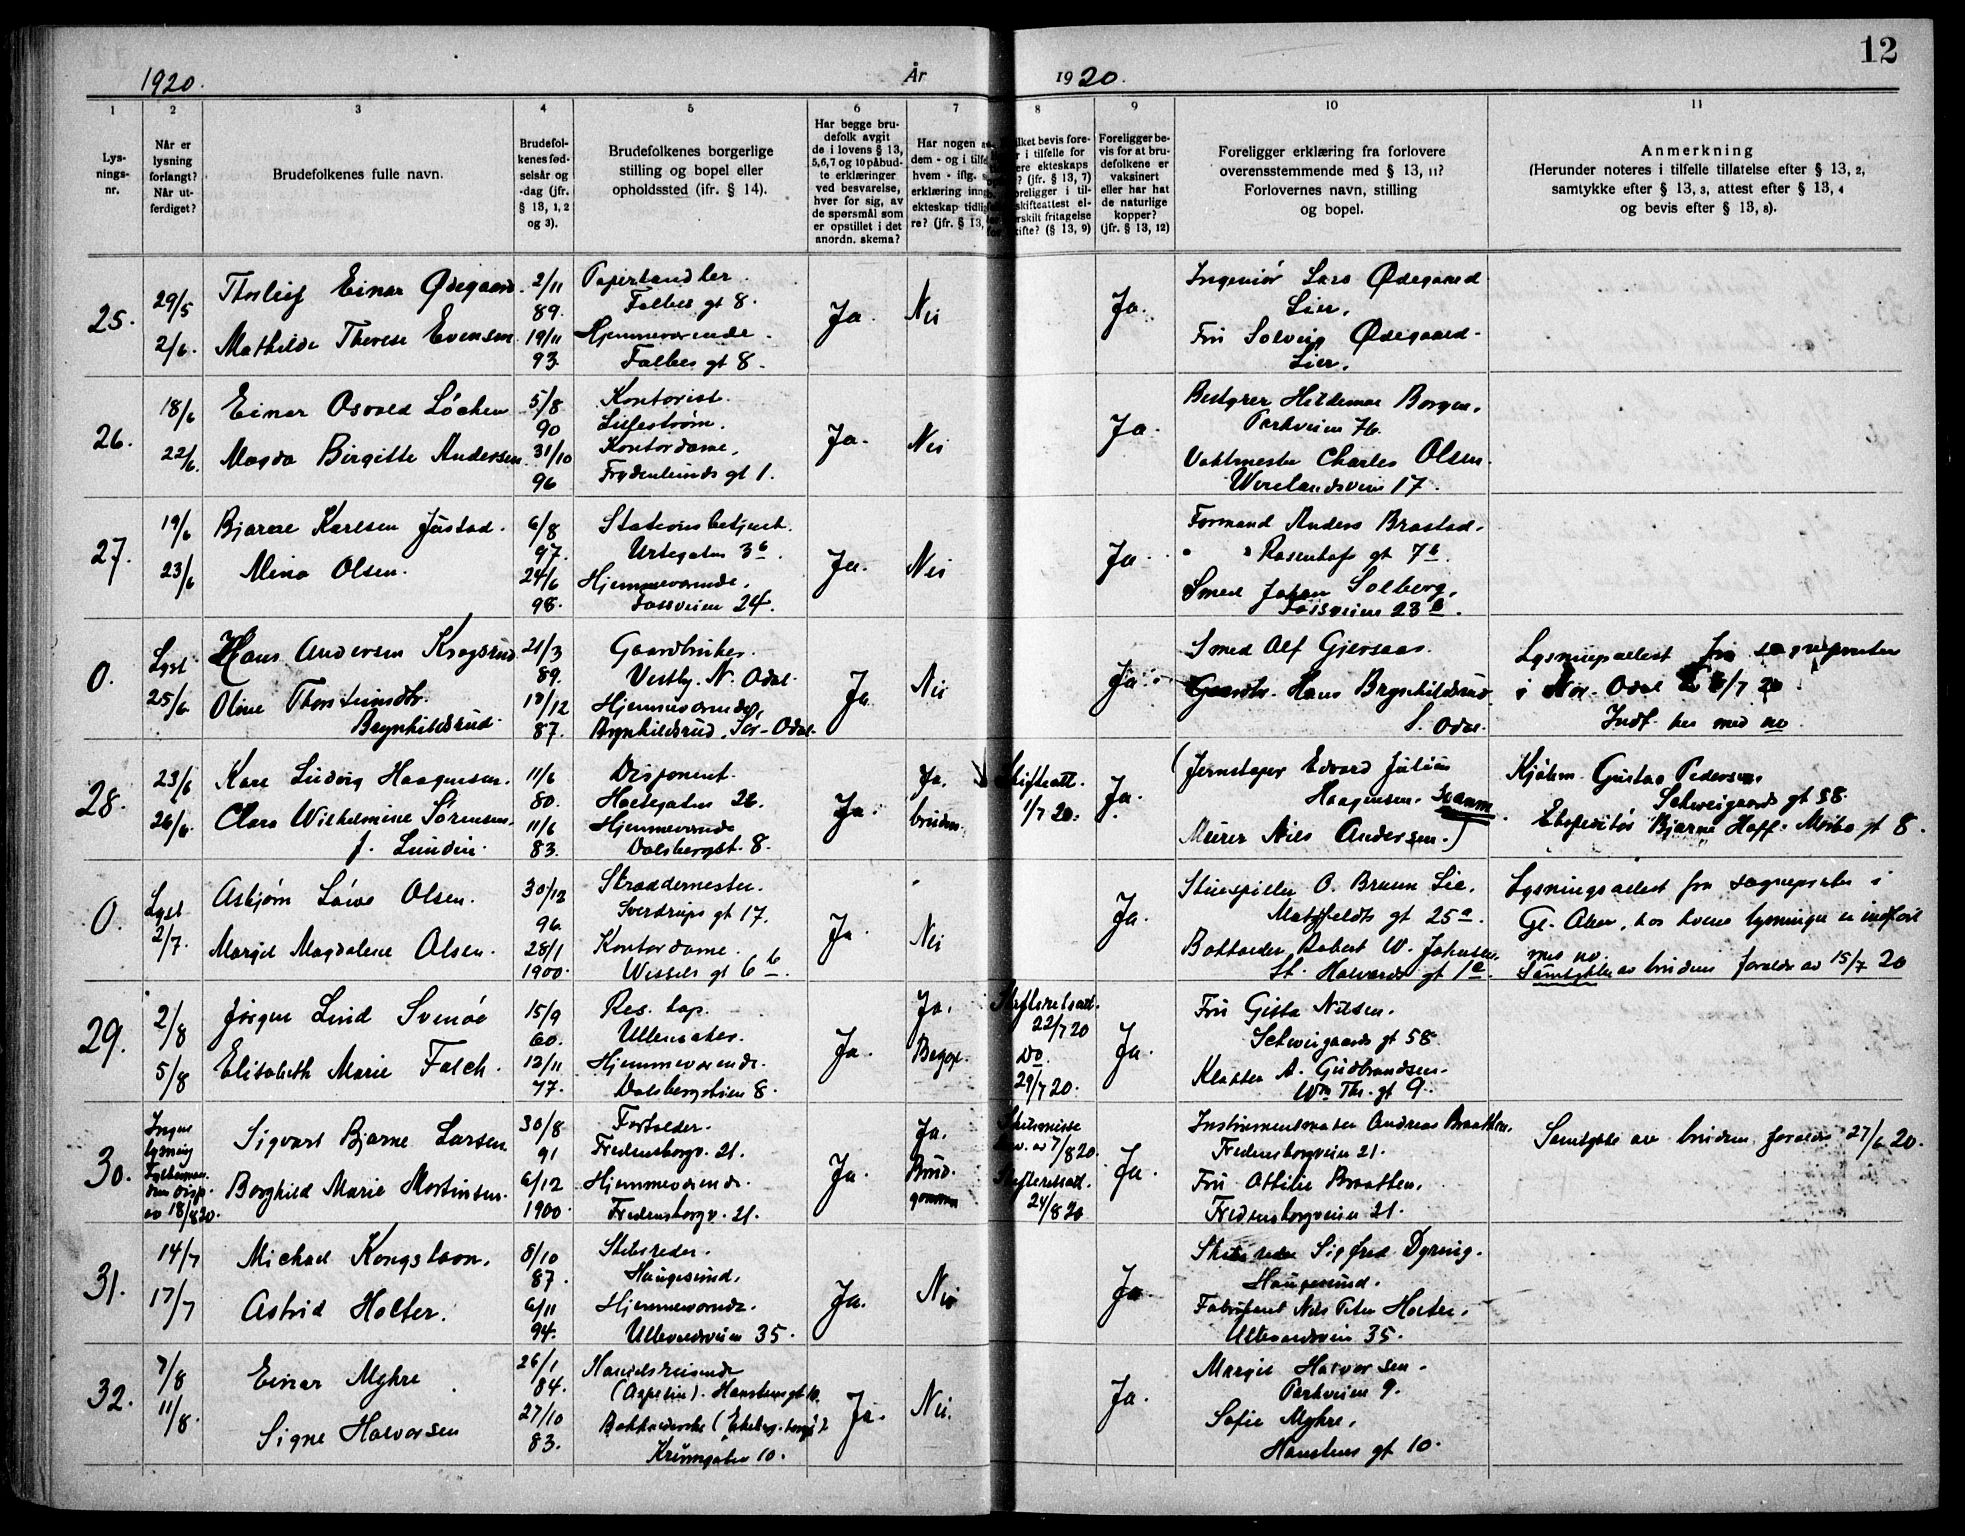 12
1920.
År
1920.
1
2
3
4
5
6
7
8
9
10
11
Lys-
nings-
nr.
Når er
lysning
forlangt?
Når ut-
ferdiget?
Brudefolkenes fulle navn.
Brudefol-
kenes fød-
selsår og
-dag (jfr.
§ 13, 1, 2
og 3).
Brudefolkenes borgerlige
stilling og bopel eller
opholdssted (ifr. § 14).
Har begge bru-
defolk avgit
de i lovens § 13,
5,6,7 og 10 påbud-
te erklæringer
ved besvarelse,
hver for sig, av
de spørsmål som
er opstillet i det
anordn. skema?
Har nogen
dem - og i tilfe
hvem - iflg.
erklæring inng
ekteskap tidlig
re? (jfr. § 13,
lket bevis fore-
r i tilfelle for
ere ekteskaps
? (jfr. § 13, 7)
oreligger i til-
skifteattest el-
rskilt fritagelse
kifte? (§ 13, 9)
Foreligger be-
vis for at bru-
defolkene er
vaksinert
eller har hat
de naturlige
kopper?
(jfr. § 13, 12)
Foreligger erklæring fra forlovere
overensstemmende med § 13, 11?
Forlovernes navn, stilling
og bopel.
Anmerkning
(Herunder noteres i tilfelle tillatelse efter § 13, 2,
samtykke efter § 13, 3, attest efter § 13, 4
og bevis efter § 13, 8).
25.
29/5
2/6.
Thorleif Einar Ødegaard.
Mathilde Therese Evensen.
2/11
89.
19/11
93.
Papirhandler.
Falbes gt 8.
Hjemmeværende.
Falbes gt 8.
Ja.
Nei
Ja.
Ingeniør Lars Ødegaard
Lier.
Fru Solveig Ødegaard.
Lier.
26.
18/6
22/6.
Einar Osvald Løchen
Magda Birgitte Andersen
5/8
90
31/10
96
Kontorist.
Lillestrøm.
Kontordame.
Frydenlunds gt 1.
Ja.
Nei
Ja.
Bestyrer Hildemar Borgen.
Parkveien 76.
Vaktmester Charles Olsen.
17.
27.
19/6
23/6
Bjarne Karlsen Justad.
Mina Olsen.
6/8
97.
24/6
98.
Stationsbetjent.
Urtegaten 3b.
Hjemmeværende.
Fossveien 24.
Ja.
Nei
Ja.
Formand Anders Brastad.
" " Rosenhofs gt 7b.
Smed Johan Solberg.
Fossveien 23
0.
Lyst
25/6.
Hans Andersen Krogsrud
Oline Thorsteinsdtr.
Brynhildsrud.
21/3
89.
12/12
87.
Gaardbruker.
Vestby. N. Odal.
Hjemmeværende,
Brynhildsrud, Sør-Odal.
Ja
Nei
Ja.
Smed Alf Gjersaas.
Gaardbr. Hans Brynhildsrud.
S. Odal.
Lysningsattest fra sogneprsten
i Nor-Odal /7 20.
Indf. her med no.
28.
23/6
26/6.
Karl Ludvig Haagensen.
Clara Wilhelmine Sørensen.
f. Lundin.
11/6
80.
11/6
83.
Disponent.
Holtegaten 26.
Hjemmeværende
Dalsbergst. 8.
Ja.
Ja.
bruden.
Skifteatt.
1/7 20.
Ja.
(Jernstøper Edvard Julius
Haagensen. Svanm.
Murer Nils Andersen.)
Kjøbm. Gustav Pedersen.
Schweigaards gt 58.
Ekspeditør Bjarne Hoff. gt 8.
0.
Lyst
2/7.
Asbjørn Løwe Olsen.
Margit Magdalene Olsen.
30/12
96.
28/1
1900.
Skræddermester.
Sverdrups gt 17.
Kontordame.
Wessels gt 6b.
Ja
Nei
Ja.
Skuespiller O. Bruun Lie.
Meltzfeldts gt 25a.
Bokholder Robert W. Johnsen.
St. Halvards gt 1e.
Lysningsattest fra sogneprsten i
Gl. Aker, hos hvem lysningen er indført
med no.
Samtykke av brudens forældre av 15/7 20
29.
2/8
5/8
Jørgen Lind Svenøe
Elisabeth Marie Falch.
15/9
60.
12/11
77.
Res. kap.
Ullensaker.
Hjemmeværende.
Dalsbergstien 8.
Ja.
Ja.
Begge.
Skifteretsatt.
22/7 20
Do.
29/7 20.
Ja.
Fru Gitta Nilsen.
Schweigaards gt 58
Klokker A. Gudbrandsen.
Wm Thr. gt 9.
30.
Ingen
lysning
dep.
av 18/8 20.
Sigvart Bjarne Larsen.
Borghild Marie Martinsen.
30/8
91
6/12
1900.
Forvalter.
Fredensborgv. 21.
Hjemmeværende.
Fredensborgv. 21.
Ja.
Ja.
Brud-
gommen
Skilsmisse
bev. av 7/8 20.
Skifteretsatt.
24/8 20
Ja.
Instrumentmaker Andreas Braathen.
Fredensborgveien 21.
Fru Ottilie Braathen.
Fredensborgveien 21.
Samtykke av brudens forældre 27/6 20.
31.
14/7
17/7
Michael Kongshavn.
Astrid Holter.
8/10
87.
6/11
94.
Skibsreder.
Haugesund.
Hjemmeværende.
Ullevaalsveien 35.
Ja.
Nei
Ja
Skibsreder Sigfred Dyring.
Haugesund.
Fabrikant Nils Peter Holter.
Ullevaalsveien 35.
32.
7/8
11/8.
Einar Myhre
Signe Halvorsen
26/1
84.
27/10
83.
Handelsreisende
Hansteens gt 10.
Bokholderske
Krumgaten 10.
Ja.
Nei.
Ja.
Margit Halvorsen.
Parkveien 9.
Sofie Myhre.
Hansteens gt 10.